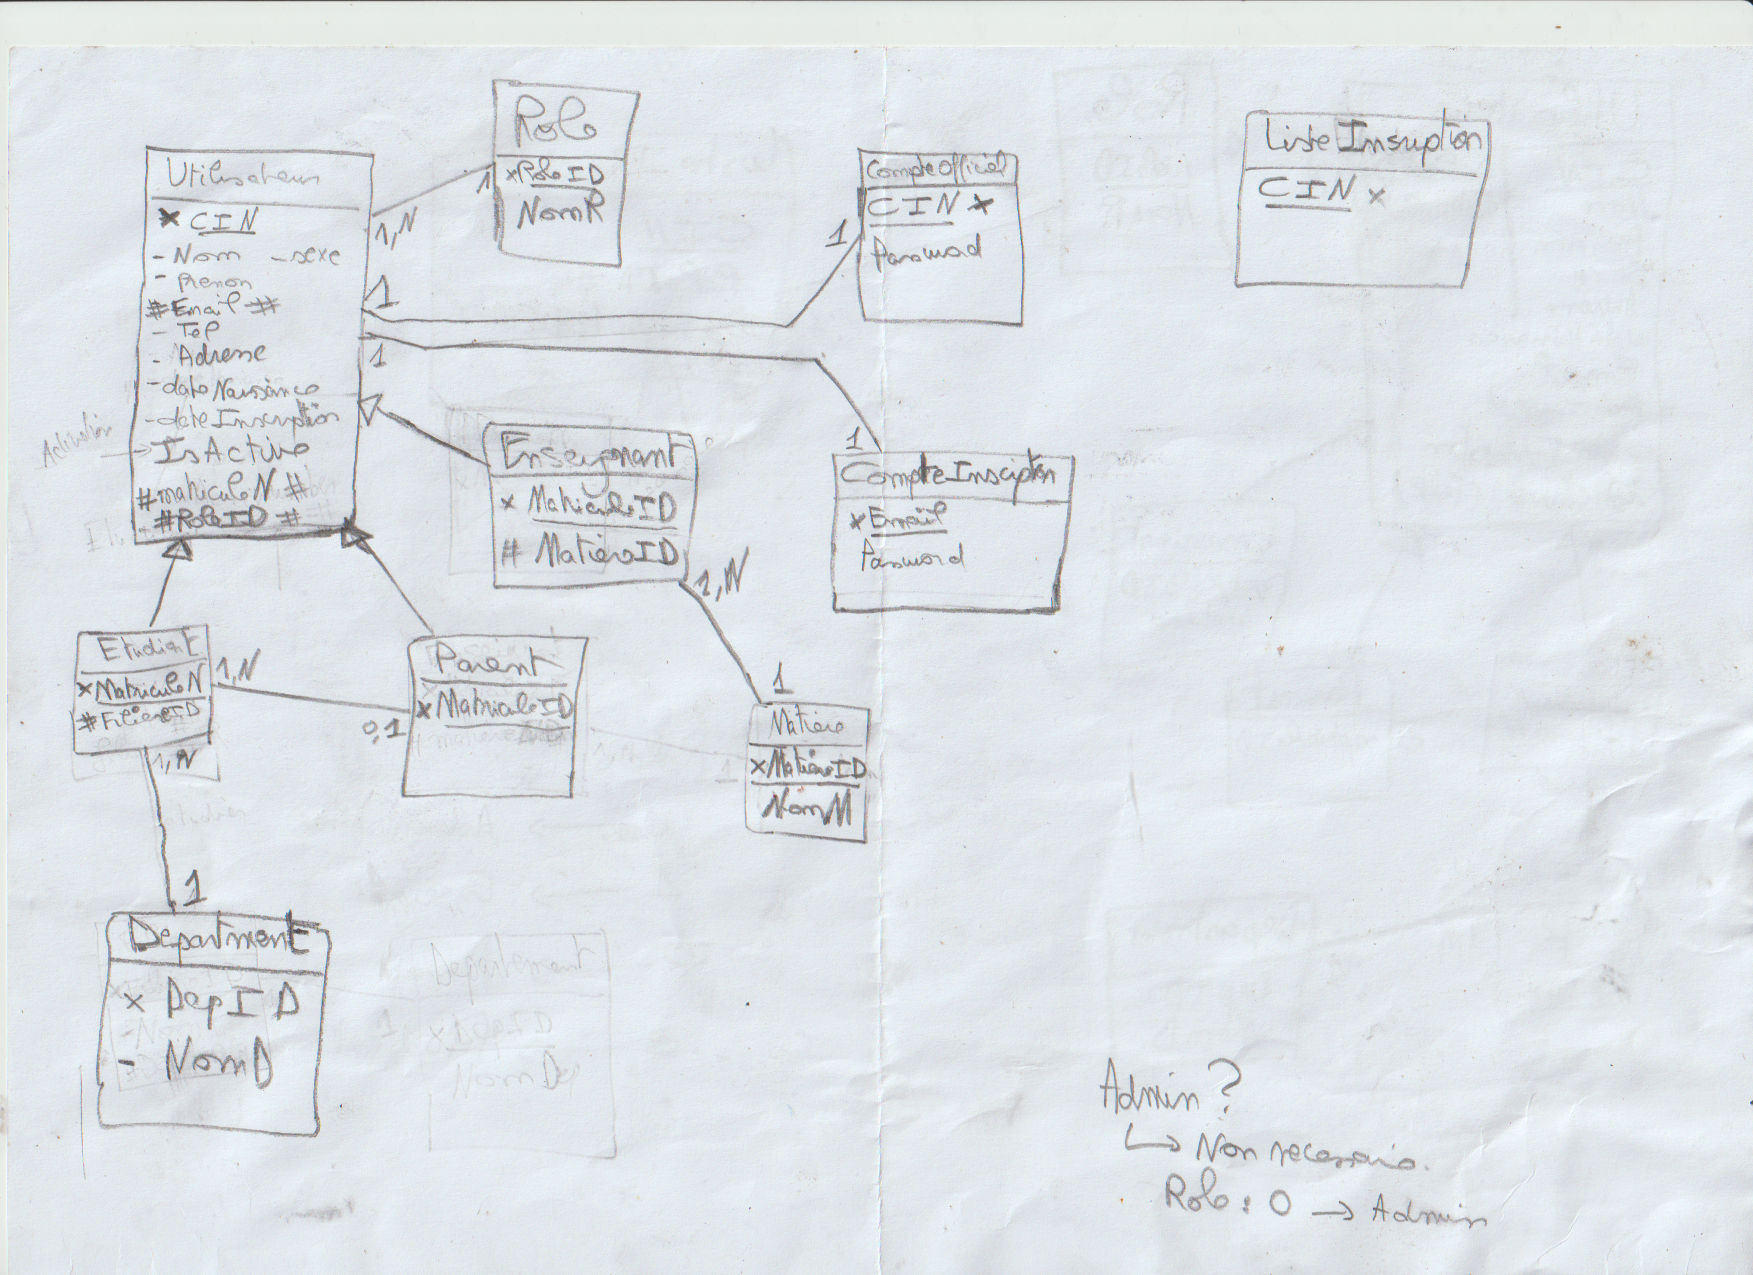 Role
*RoleID
NomR
Utilisateur
* CIN
- Nom - sexe
- Prenom
#Email #
- Tel
- Adresse
- dateNaissance
- dateInscription
Activation → IsActive
#matriculeN #
#RoleID #
1,N
1
CompteOfficiel
CIN *
Password
1
1
ListeInscription
CIN x
1
1
Enseignant
x MatriculeID
# MatiereID
1,N
1
CompteInsciption
*Email
Password
Etudiant
*MatriculeN
#FiliereID
1,N
0,1
Parent
x MatriculeID
Matiere
xMatiereID
NomM
1,N
1
Department
x DepID
- NomD
Departement
NomDep
1
Admin ?
↳ Non necessaire.
Role : 0 → Admin